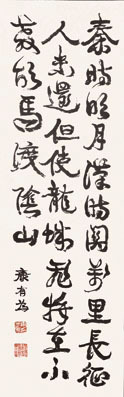 秦時明月漢時關萬里長征
人未還但使龍城飛將在不
教胡馬渡陰山
康有為